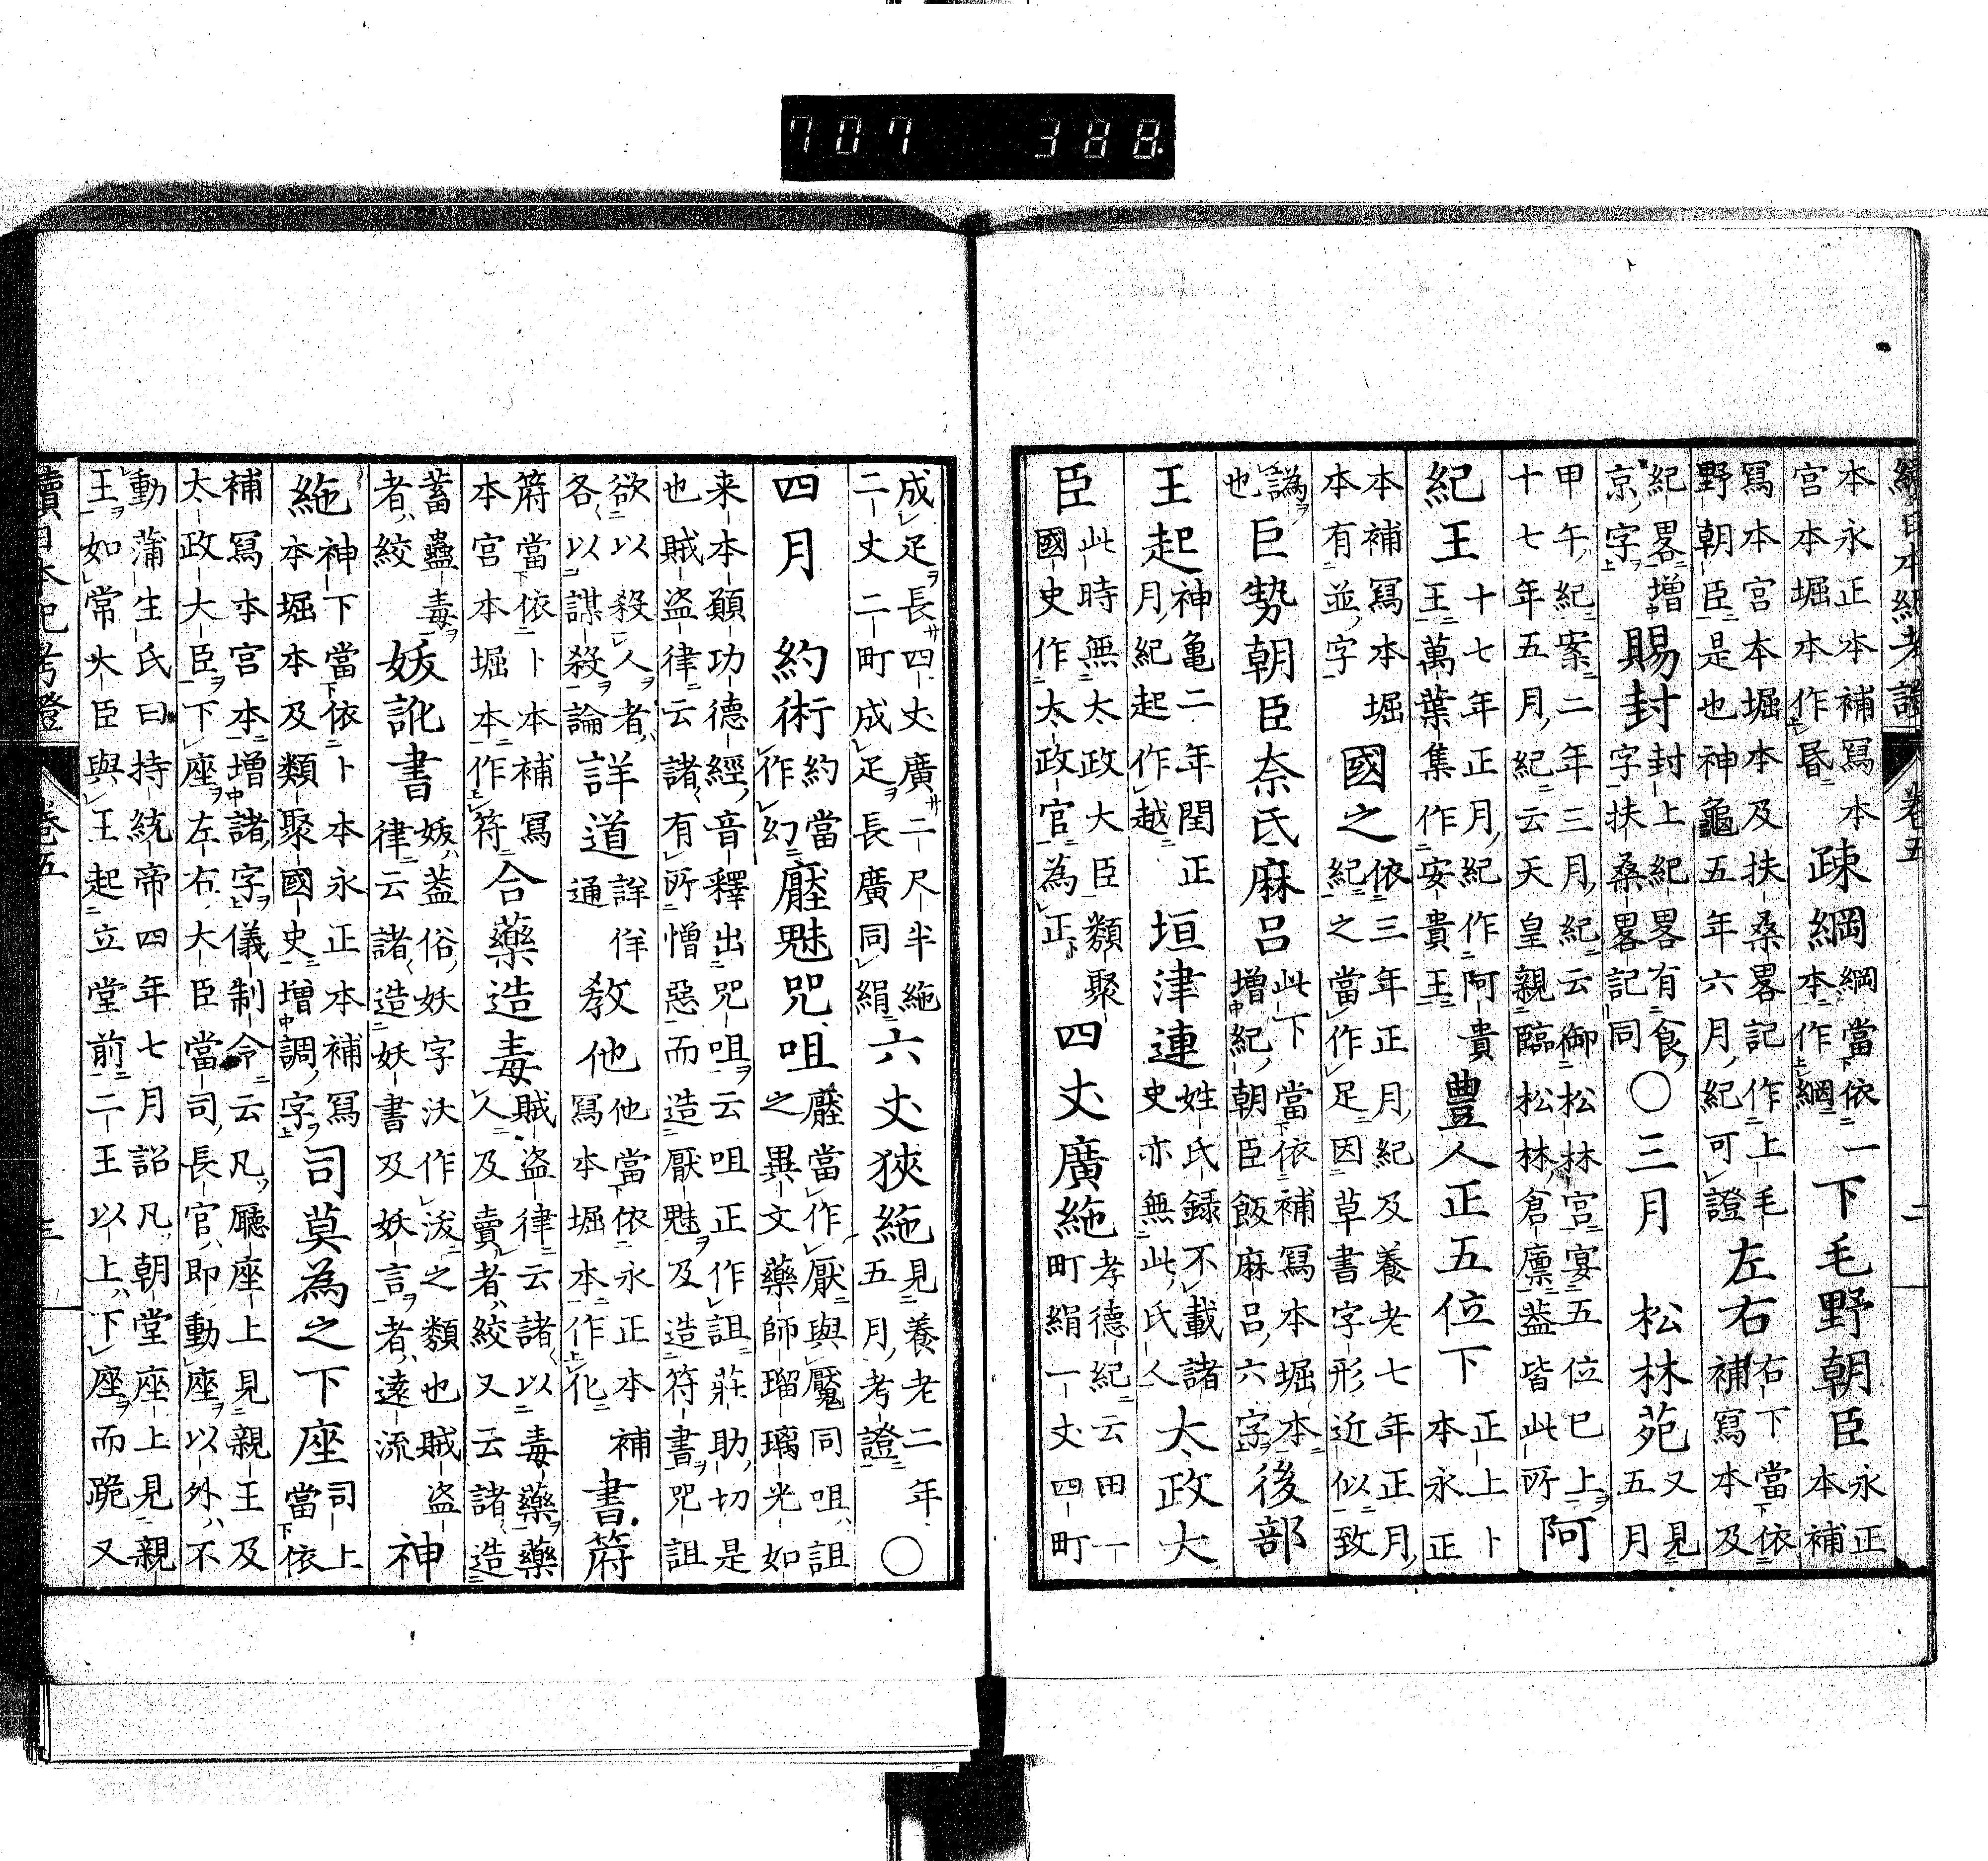 續日本紀考證 卷五 二
本永正本補寫本
宮本堀本作昬
疎綱
綱當依
本作綱
一下毛野朝臣
永正
本補
寫本宮本堀本及扶桑畧記作上毛
野朝臣是也神龜五年六月紀可證
左右
右下當依
補寫本及
紀畧增
京字
賜封
封上紀畧有食
字扶桑畧記同
○三月 松林苑
又見
五月
甲午紀案二年三月紀云御松林宮宴五位已上
十七年五月紀云天皇親臨松林倉廩葢皆此所
阿
紀王
十七年正月紀作阿貴
王萬葉集作安貴王
豊人正五位下
正上卜
本永正
本補寫本堀
本有並字
國之
依三年正月紀及養老七年正月
紀之當作足因草書字形近似致
譌
也
巨勢朝臣奈氐麻呂
此下當依補寫本堀本
增紀朝臣飯麻呂六字
後部
王起
神亀二年閏正
月紀起作越
垣津連
姓氏録不載諸
史亦無此氏人
太政大
臣
此時無太政大臣類聚
國史作太政官為正
四丈廣絁
孝德紀云田一
町絹一丈四町
成足長四丈廣二尺半絁
二丈二町成足長廣同絹
六丈狹絁
見養老二年
五月考證
○
四月 約術
約當
作幻
魅咒咀
當作厭與魘同咀詛
之異文藥師瑠璃光如
来本願功德經音釋出咒咀云咀正作詛莊助切是
也賊盗律云諸有所憎惡而造厭魅及造符書咒詛
欲以殺人者
各以謀殺論
詳道
詳佯
通
教他
他當依永正本補
寫本堀本作化
書符
符當依卜本補寫
本宮本堀本作符
合藥造毒
賊盗律云諸以毒藥藥
人及賣者絞又云諸造
蓄蠱毒
者絞
妖訛書
妖葢俗妖字汰作泼之類也賊盗
律云諸造妖書及妖言者遠流
神
絁
神下當依卜本永正本補寫
本堀本及類聚國史增調字
司莫為之下座
司上
當依
補寫本宮本增諸字儀制令云凡廳座上見親王及
太政大臣下座左右大臣當司長官即動座以外不
動蒲生氏曰持統帝四年七月詔凡朝堂座上見親
王如常大臣與王起立堂前二王以上下座而跪又
續日本紀考證 卷五 三